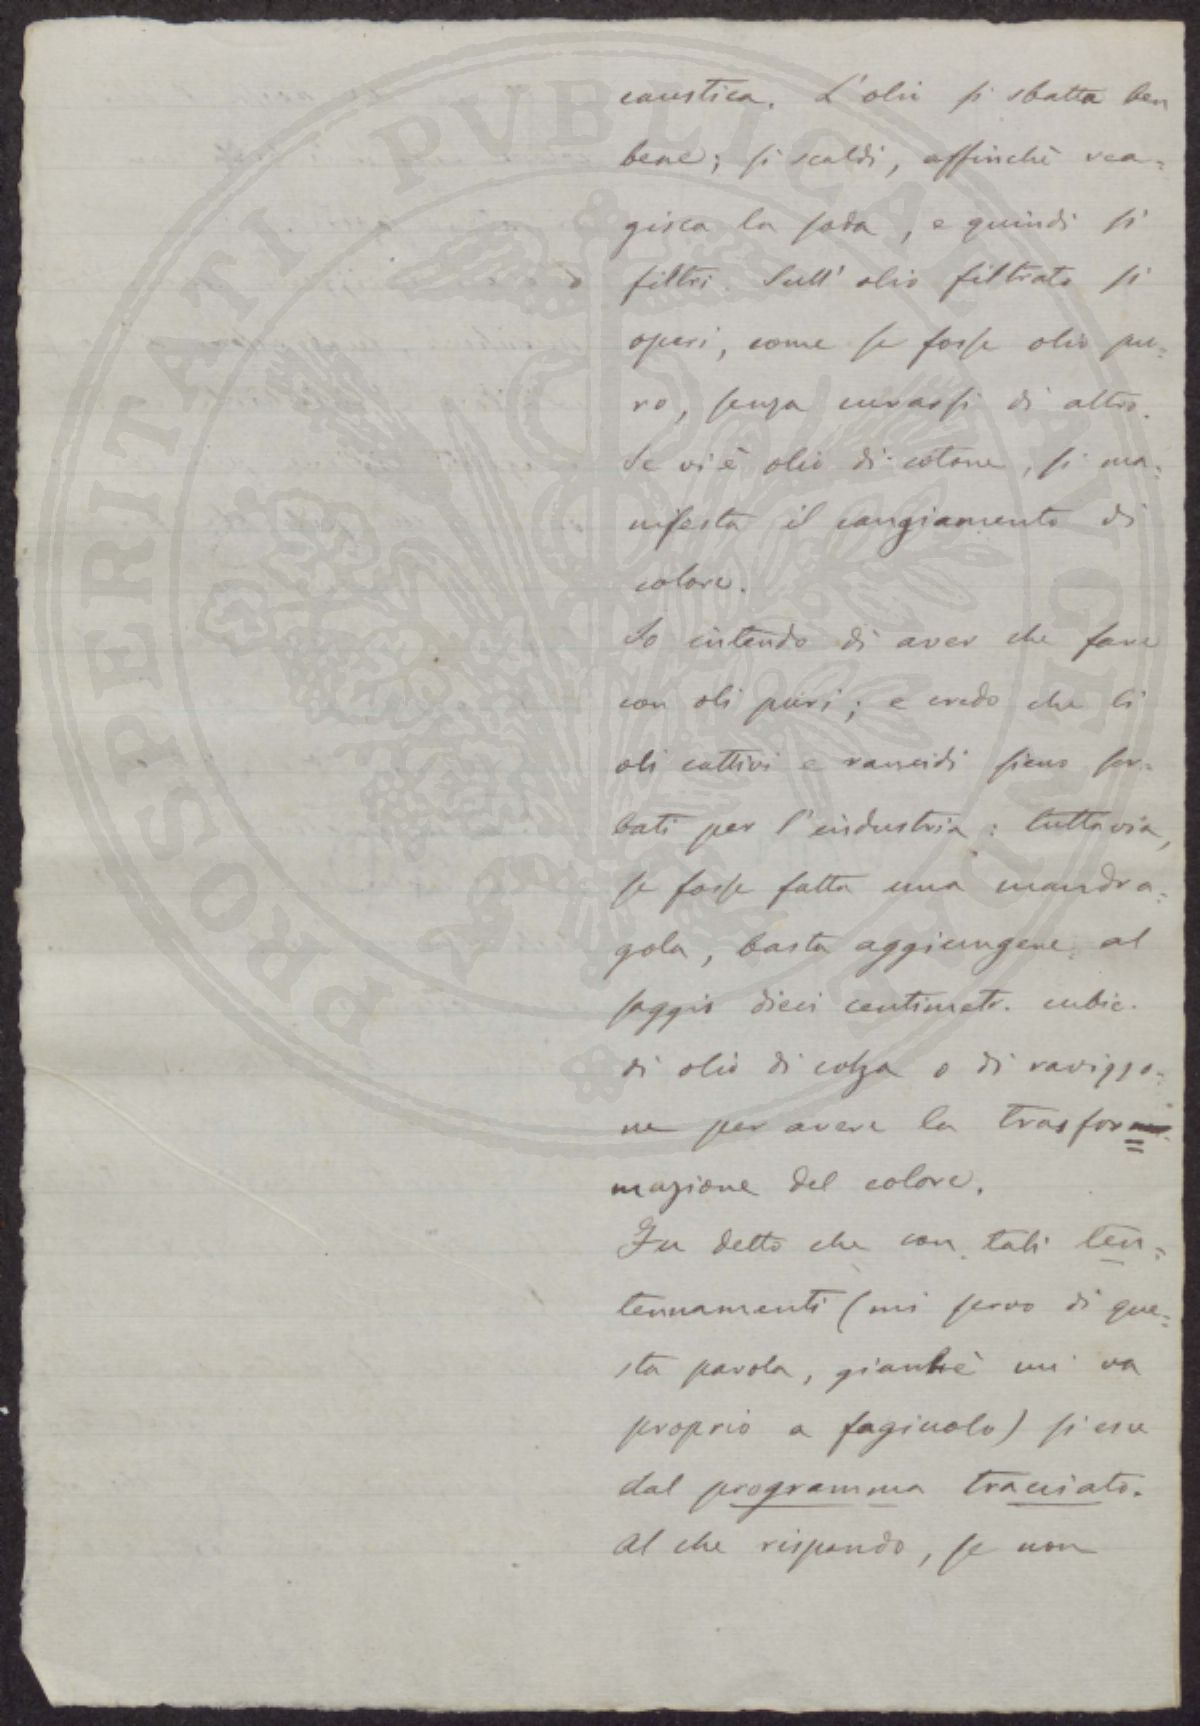 caustica. L'olio si sbatta ben
bene; si scaldi, affinchè rea-
gisca la soda, e quindi si
filtri. Sull'olio filtrato si
operi, come se fosse olio pu-
ro, senza curarsi di altro.
Se vi è olio di cotone, si ma-
nifesta il cangiamento di
colore.
Io intendo di aver che fare
con oli puri; e credo che li
oli cattivi e rancidi sieno ser-
bati per l'industria: tuttavia,
se fosse fatta una mandra-
gola, basta aggiungere al
saggio dieci centimetr. cubic.
di olio di colza o di ravizzo-
ne per avere la trasfor-
mazione del colore.
Fu detto che con tali ten-
tennamenti (mi servo di que-
sta parola, gianchè mi va
proprio a fagiuolo) si esce
dal programma tracciato.
Al che rispondo, se non
PROSPERITATI PVBLICAE AVGENDAE